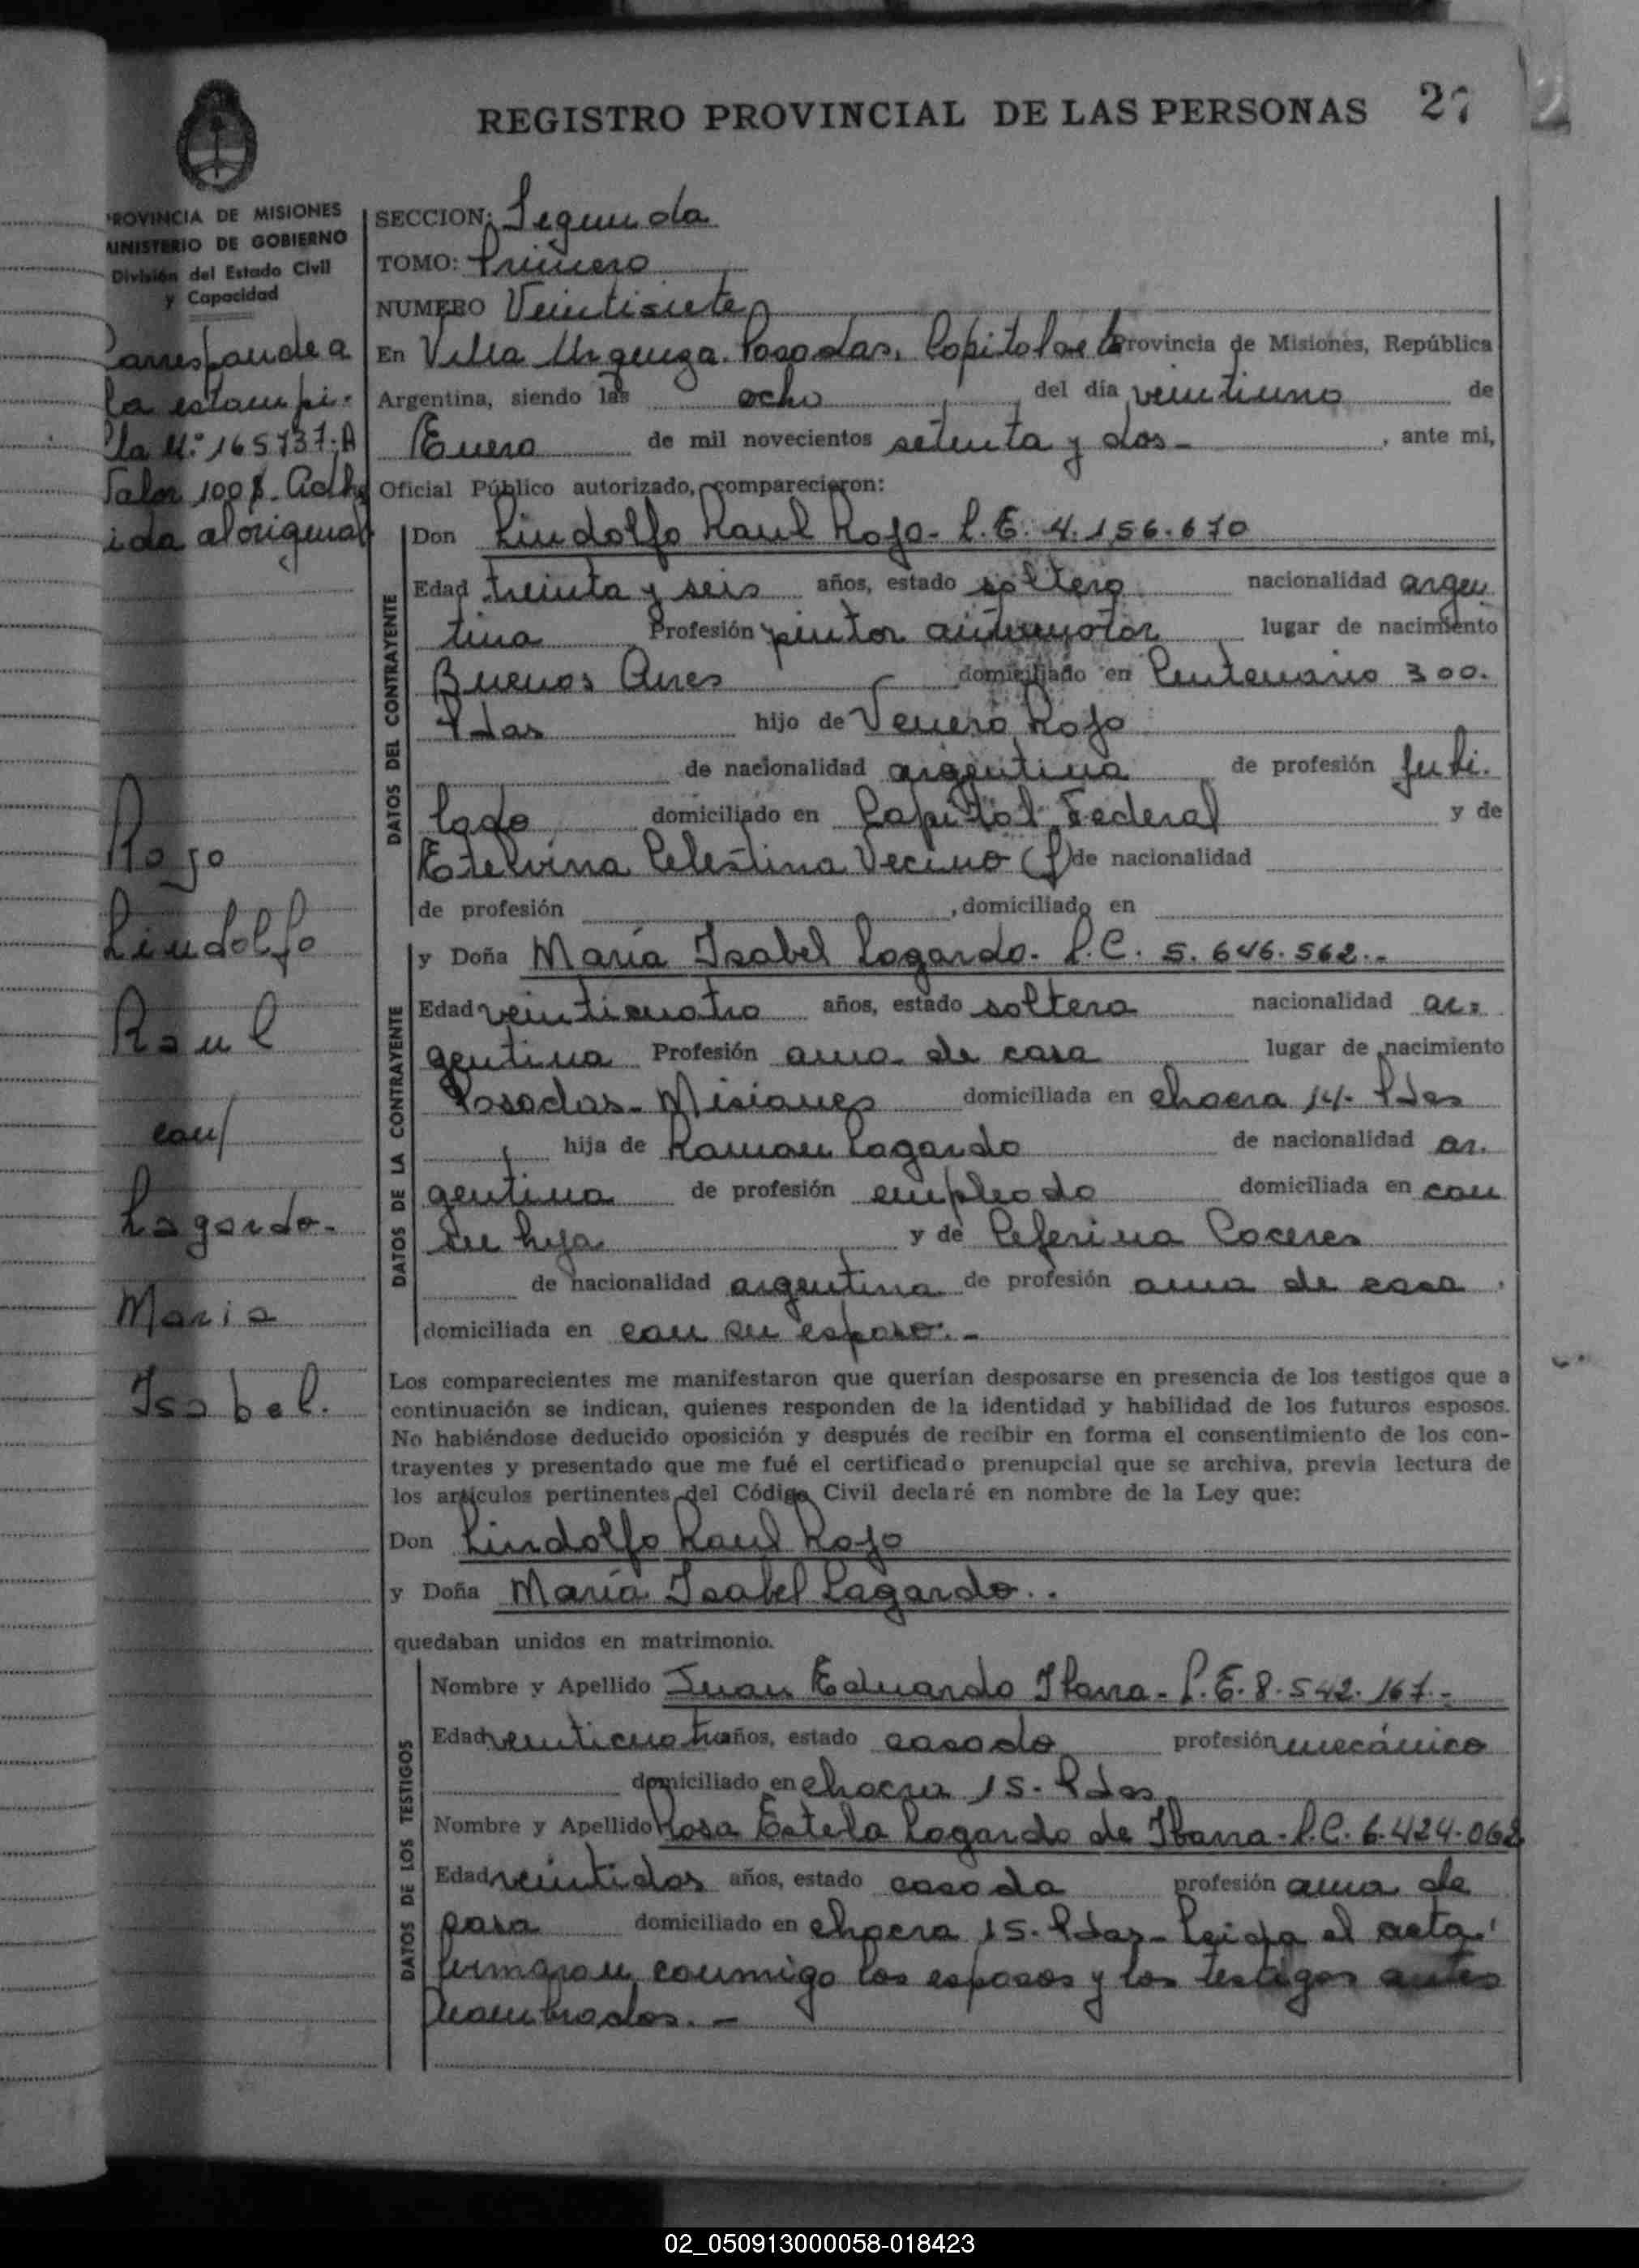 REGISTRO PROVINCIAL DE LAS PERSONAS 27
PROVINCIA DE MISIONES
MINISTERIO DE GOBIERNO
División del Estado Civil
y Capacidad
Corresponde a
la estampi-
lla Nº 165737-A
Valor 100 $. Adhe
ida al original
Rojo
Lindolfo
Raul
con/
Lagardo.
Maria
Isabel.
SECCION: Segunda
TOMO: Primero
NUMERO Veintisiete
En Villa Urquiza. Posadas, Capital de la Provincia de Misiones, República
Argentina, siendo las ocho del día veintiuno de
Enero de mil novecientos setenta y dos- , ante mi,
Oficial Público autorizado, comparecieron:
DATOS DEL CONTRAYENTE
Don Lindolfo Raul Rojo- L.E. 4.156.670
Edad treinta y seis años, estado soltero nacionalidad argen
tina Profesión pintor automotor lugar de nacimiento
Buenos Aires domiciliado en Centenario 300.
Pdas hijo de Venero Rojo
de nacionalidad argentina de profesión jubi-
lado domiciliado en Capital Federal y de
Etelvina Celestina Vecino (f) de nacionalidad
de profesión , domiciliado en
DATOS DE LA CONTRAYENTE
y Doña María Isabel Lagardo- L.C. 5.646.562.-
Edad veinticuatro años, estado soltera nacionalidad ar-
gentina Profesión ama de casa lugar de nacimiento
Posadas- Misiones domiciliada en chacra 14- Pdas
hija de Ramon Lagardo de nacionalidad ar-
gentina de profesión empleado domiciliada en con
su hija y de Ceferina Coceres
de nacionalidad argentina de profesión ama de casa ,
domiciliada en con su esposo.-
Los comparecientes me manifestaron que querían desposarse en presencia de los testigos que a
continuación se indican, quienes responden de la identidad y habilidad de los futuros esposos.
No habiéndose deducido oposición y después de recibir en forma el consentimiento de los con-
trayentes y presentado que me fué el certificado prenupcial que se archiva, previa lectura de
los artículos pertinentes del Código Civil declaré en nombre de la Ley que:
Don Lindolfo Raul Rojo
y Doña María Isabel Lagardo..
quedaban unidos en matrimonio.
DATOS DE LOS TESTIGOS
Nombre y Apellido Juan Eduardo Ibarra- L.E. 8.542.167.-
Edad veinticuatro años, estado casado profesión mecánico
domiciliado en chacra 15- Pdas
Nombre y Apellido Rosa Estela Lagardo de Ibarra- L.C. 6.424.062
Edad veintidos años, estado casada profesión ama de
casa domiciliado en chacra 15. Pdas- Leida el acta,
firmaron conmigo los esposos y los testigos antes
nombrados.-
02_050913000058-018423